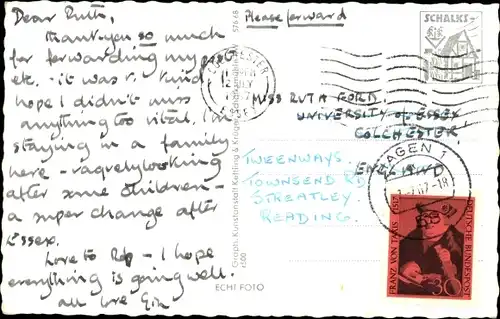 Dear Ruth,
Thank you so much
for forwarding my post
etc. - it was v. kind.
hope I didn't miss
anything too vital. I'm
staying in a family
here - vaguely looking
after some children -
a super change after
Essex.
Love to Rip - I hope
everything is going well.
all love
ECHT FOTO
Graph. Kunstanstalt
x500
576 68
Please forward
SCHALKS-
COLCHESTER
JULY
ESSEX
MISS RUTH FORD,
UNIVERSITY of ESSEX
COLCHESTER,
ENGLAND
TWEENWAYS.
TOWNSEND RD
STREATLEY
READING.
HAGEN 1
67-18
FRANZ VON TAXIS 1517
DEUTSCHE BUNDESPOST
30